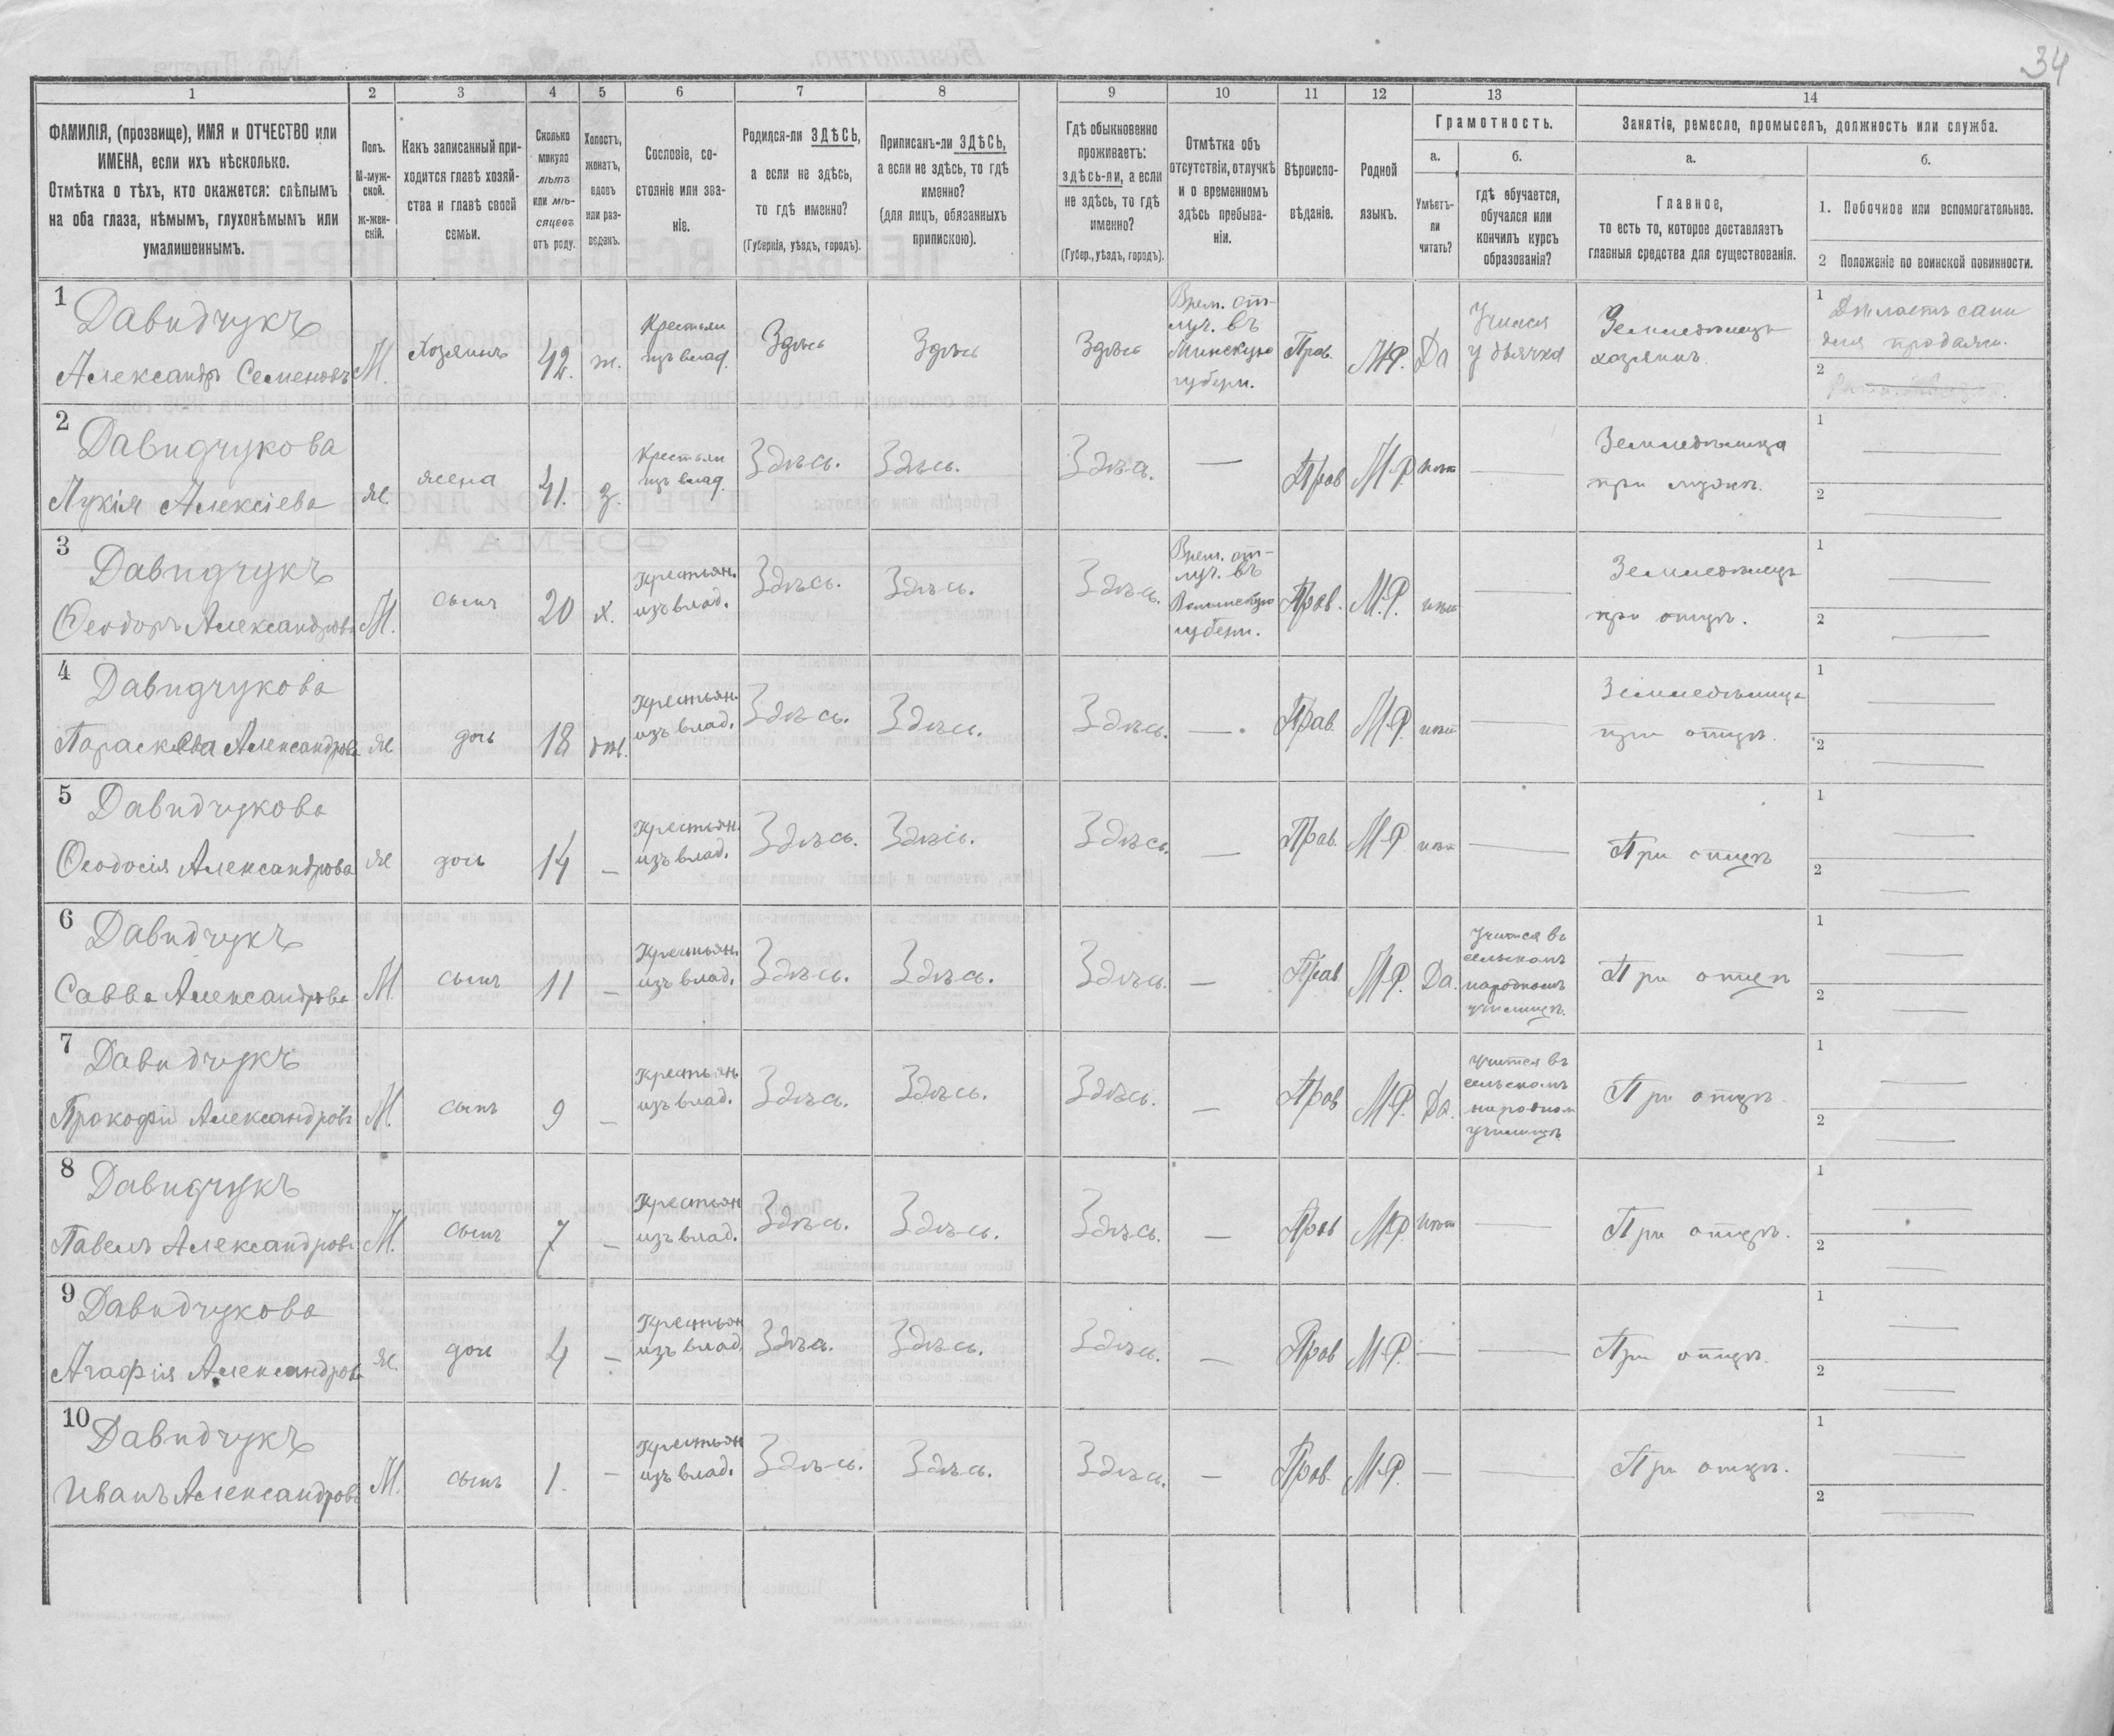 34
1 2 3 4 5 6 7 8 9 10 11 12 13 14
ФАМИЛІЯ, (прозвище), ИМЯ и ОТЧЕСТВО или
ИМЕНА, если ихъ нѣсколько.
Отмѣтка о тѣхъ, кто окажется: слѣпымъ
на оба глаза, нѣмымъ, глухонѣмымъ или
умалишеннымъ.
Полъ.
М-муж-
ской.
Ж-жен-
скій.
Какъ записанный при-
ходится главѣ хозяй-
ства и главѣ своей
семьи.
Сколько
минуло
лѣтъ
или мѣ-
сяцевъ
отъ роду.
Холостъ,
женатъ,
вдовъ
или раз-
веденъ.
Сословіе, со-
стояніе или зва-
ніе.
Родился-ли ЗДѢСЬ,
а если не здѣсь,
то гдѣ именно?
(Губернія, уѣздъ, городъ).
Приписанъ-ли ЗДѢСЬ,
а если не здѣсь, то гдѣ
именно?
(для лицъ, обязанныхъ
припискою).
Гдѣ обыкновенно
проживаетъ:
здѣсь-ли, а если
не здѣсь, то гдѣ
именно?
(Губер., уѣздъ, городъ).
Отмѣтка объ
отсутствіи, отлучкѣ
и о временномъ
здѣсь пребыва-
ніи.
Вѣроиспо-
вѣданіе.
Родной
языкъ.
Грамотность.
а.
Умѣетъ-
ли
читать?
б.
гдѣ обучается,
обучался или
кончилъ курсъ
образованія?
Занятіе, ремесло, промыселъ, должность или служба.
а.
Главное,
то есть то, которое доставляетъ
главныя средства для существованія.
б.
1. Побочное или вспомогательное.
2 Положеніе по воинской повинности.
1 Давидчукъ
Александръ Семеновъ М. Хозяинъ 42. ж.
Крестьян
изъ влад.
Здѣсь Здѣсь Здѣсь
Врем. от-
луч. въ
Минскую
губерн.
Прав. М.Р. Да
Учился
у дьячка
Земледѣлецъ
хозяинъ.
1 Дѣлаетъ сани
для продажи.
2
2 Давидчукова
Лукія Алексіева Ж. жена 41. з.
Крестьян
изъ влад.
Здѣсь. Здѣсь. Здѣсь. — Прав М.Р. нѣт —
Земледѣлица
при мужѣ.
1 —
2 —
3 Давидчукъ
Ѳеодоръ Александровъ М. сынъ 20 х.
Крестьян.
изъ влад.
Здѣсь. Здѣсь. Здѣсь.
Врем. от-
луч. въ
Волынскую
губерн.
Прав. М.Р. нѣт —
Земледѣлецъ
при отцѣ.
1 —
2 —
4 Давидчукова
Параскева Александрова Ж дочь 18 дѣв.
Крестьян.
изъ влад.
Здѣсь. Здѣсь. Здѣсь. — Прав. М.Р нѣт —
Земледѣлица
при отцѣ.
1 —
2 —
5 Давидчукова
Ѳеодосія Александрова Ж дочь 14 —
Крестьян.
изъ влад.
Здѣсь. Здѣсь. Здѣсь. — Прав. М.Р нѣт —
При отцѣ
1 —
2 —
6 Давидчукъ
Савва Александровъ М. сынъ 11 —
Крестьян.
изъ влад.
Здѣсь. Здѣсь. Здѣсь. — Прав М.Р. Да.
Учится въ
сельскомъ
народномъ
училищѣ.
При отцѣ
1 —
2 —
7 Давидчукъ
Прокофій Александровъ М. сынъ 9 —
Крестьян
изъ влад.
Здѣсь. Здѣсь. Здѣсь. — Прав М.Р. Да.
Учится въ
сельскомъ
народном
училищѣ
При отцѣ.
1 —
2 —
8 Давидчукъ
Павелъ Александровъ М. сынъ 7 —
Крестьян
изъ влад.
Здѣсь. Здѣсь. Здѣсь. — Прав М.Р. нѣт —
При отцѣ.
1 —
2 —
9 Давидчукова
Агафія Александрова Ж. дочь 4 —
Крестьян
изъ влад
Здѣсь. Здѣсь. Здѣсь. — Прав М.Р. — —
При отцѣ.
1 —
2 —
10 Давидчукъ
Иванъ Александровъ М. сынъ 1. —
Крестьян
изъ влад.
Здѣсь. Здѣсь. Здѣсь. — Прав. М.Р. — —
При отцѣ.
1 —
2 —